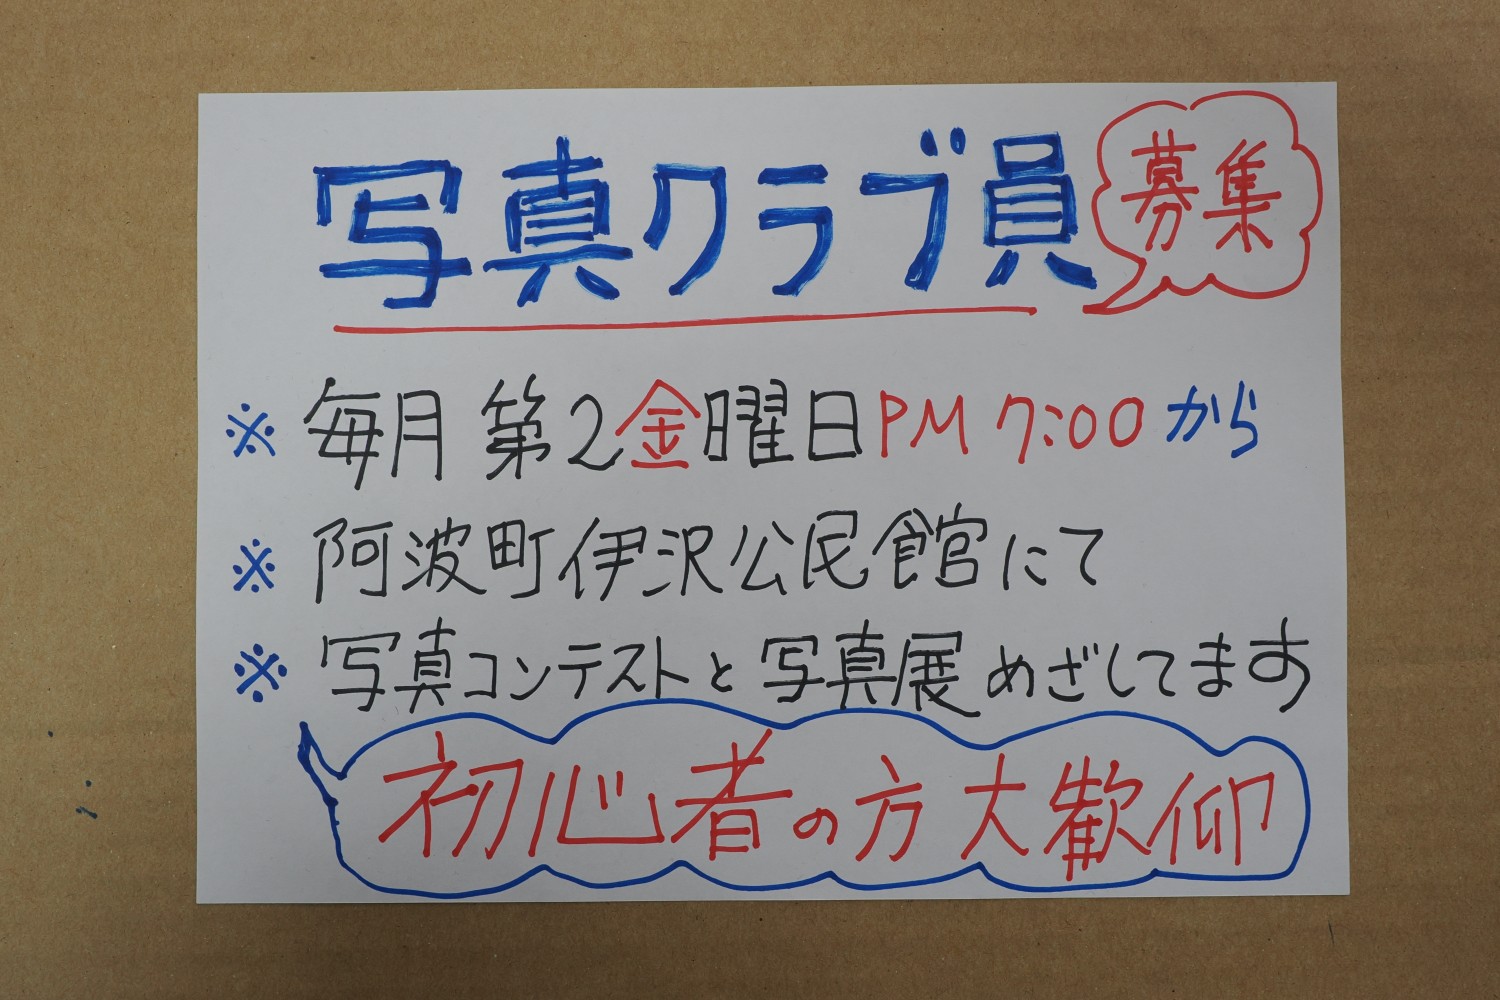 写真クラブ員 募集
※ 毎月 第2金曜日PM 7:00から
※ 阿波町伊沢公民館にて
※ 写真コンテストと写真展めざしてます
初心者の方大歓仰